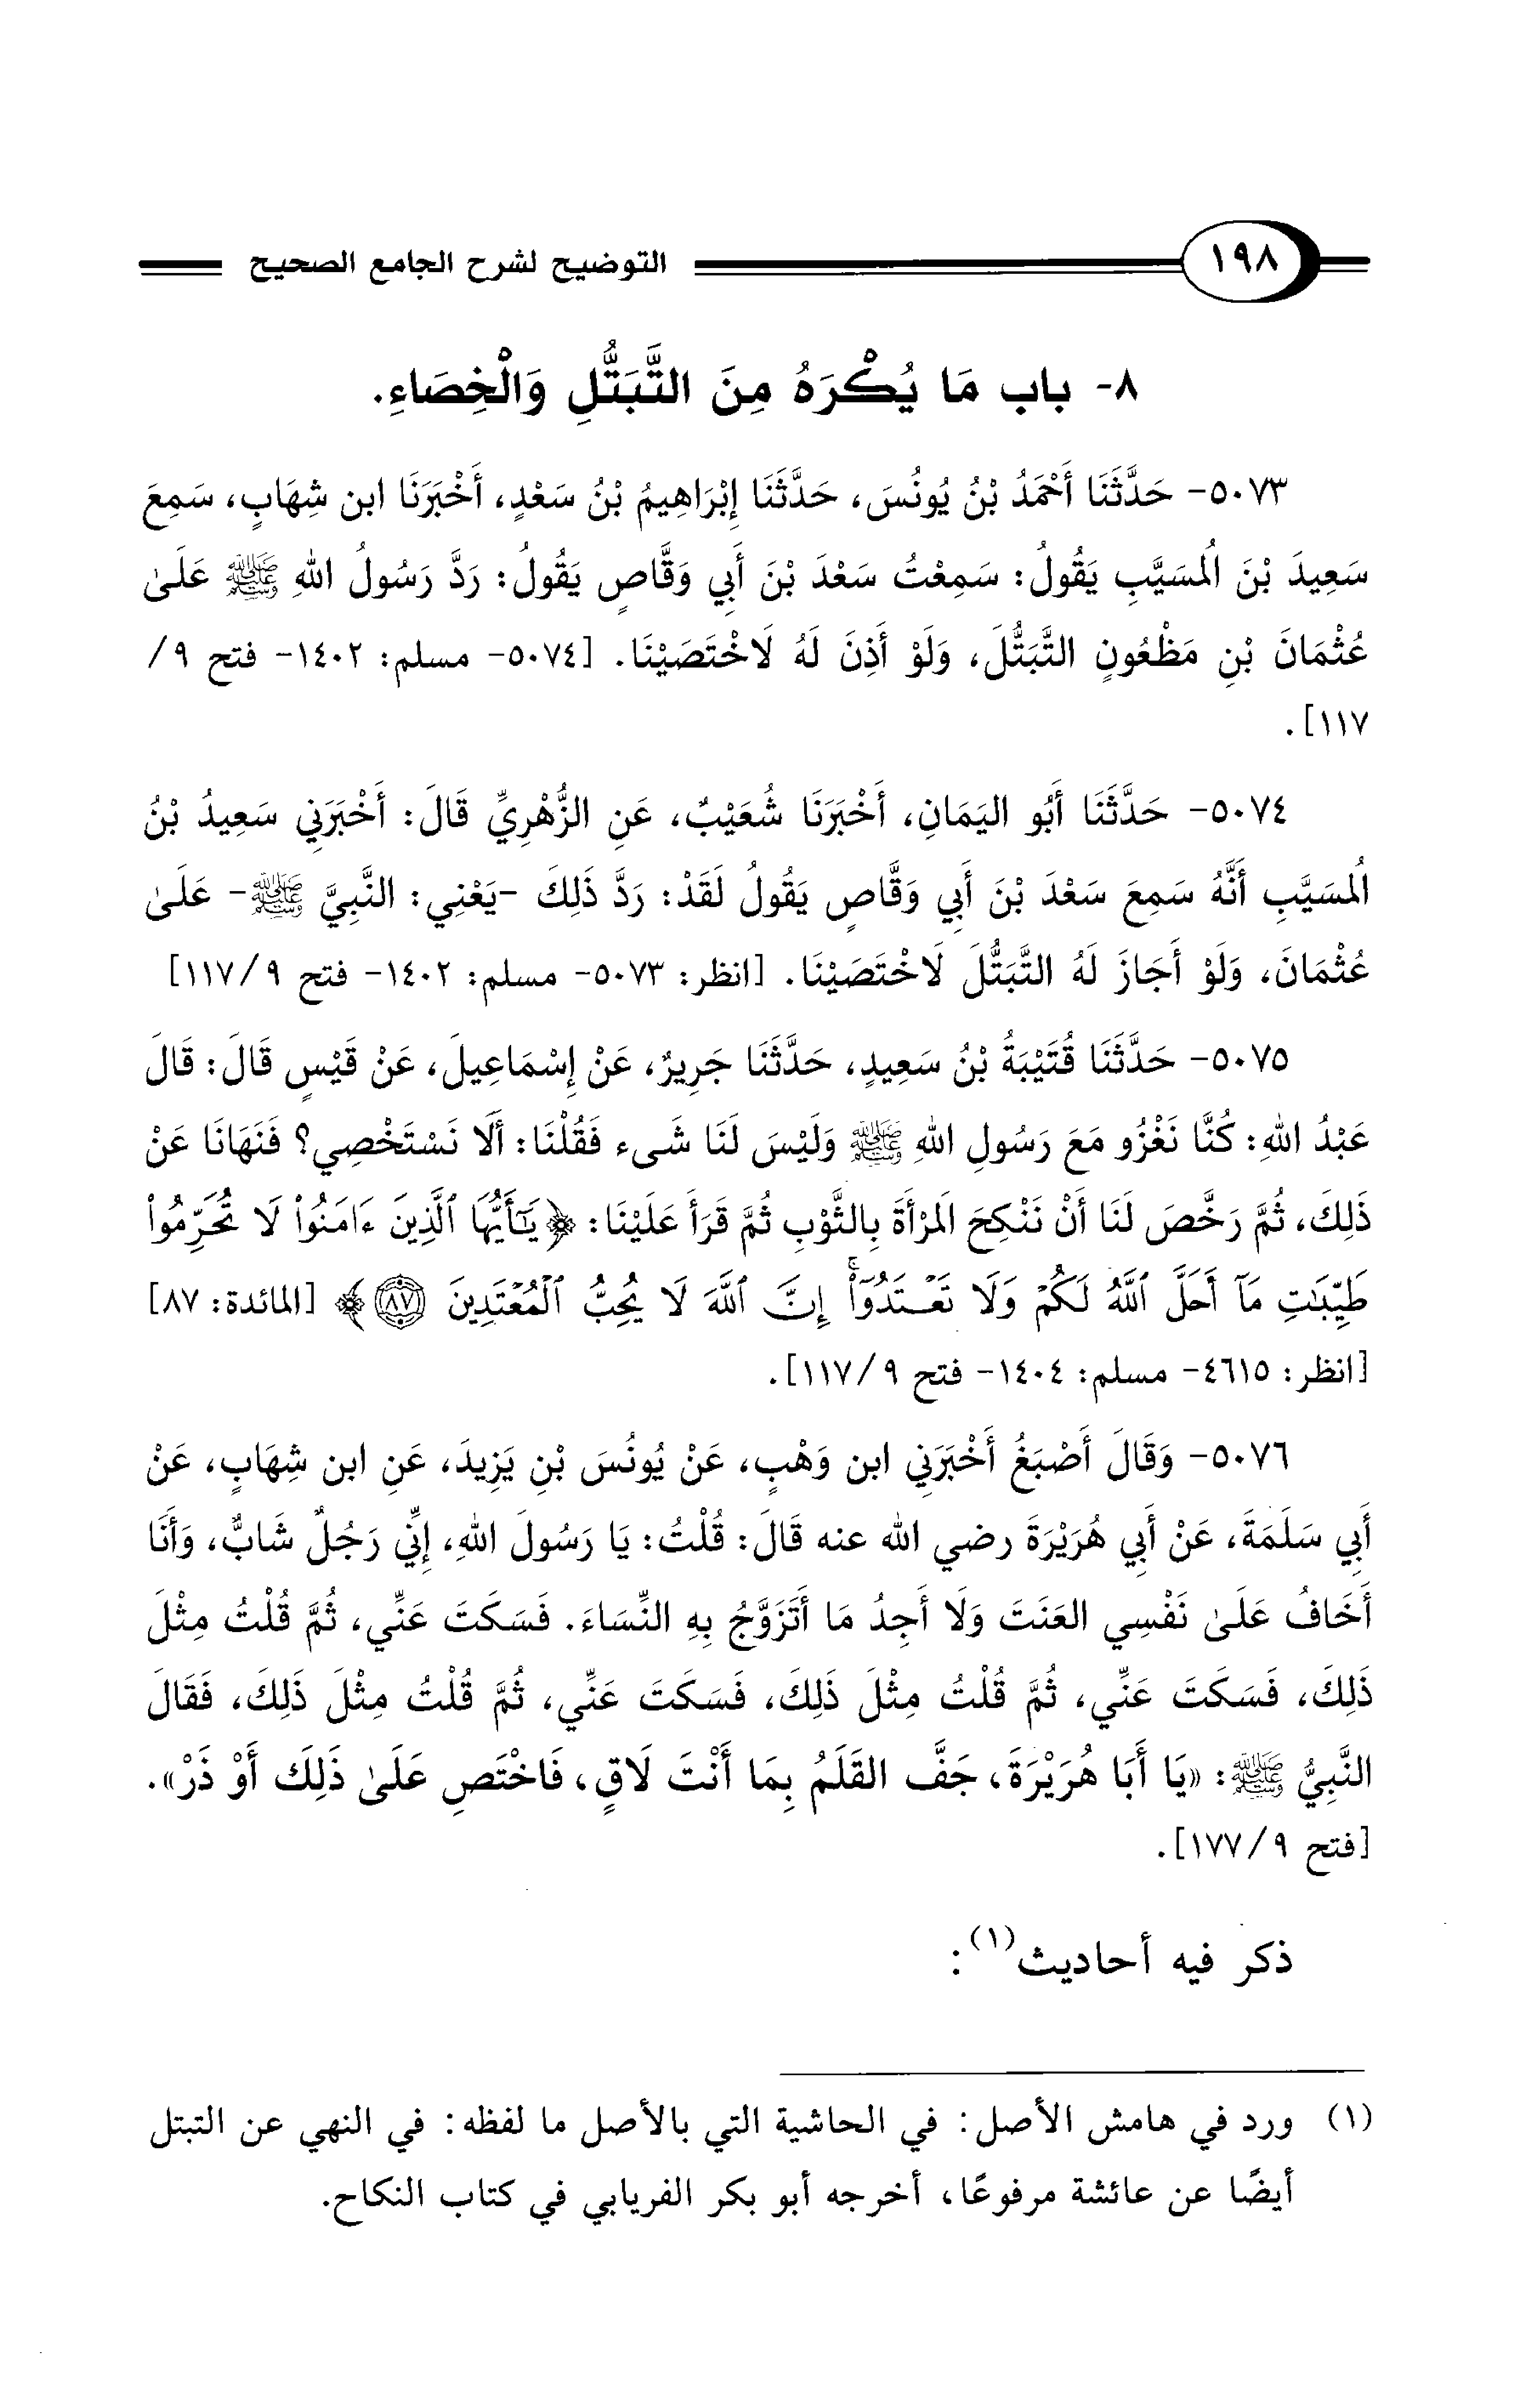 ١٩٨ التوضيح لشرح الجامع الصحيح
٨- باب مَا يُكْرَهُ مِنَ التَّبَتُّلِ وَالْخِصَاءِ.
٥٠٧٣- حَدَّثَنَا أَحْمَدُ بْنُ يُونُسَ، حَدَّثَنَا إِبْرَاهِيمُ بْنُ سَعْدٍ، أَخْبَرَنَا ابن شِهَابٍ، سَمِعَ
سَعِيدَ بْنَ الُمسَيَّبِ يَقُولُ: سَمِعْتُ سَعْدَ بْنَ أَبِي وَقَّاصٍ يَقُولُ: رَدَّ رَسُولُ اللهِ ﷺ عَلَىٰ
عُثْمَانَ بْنِ مَظْعُونٍ التَّبَتُّلَ، وَلَوْ أَذِنَ لَهُ لَاخْتَصَيْنَا. [٥٠٧٤- مسلم: ١٤٠٢- فتح ٩/
١١٧].
٥٠٧٤- حَدَّثَنَا أَبُو اليَمَانِ، أَخْبَرَنَا شُعَيْبٌ، عَنِ الزُّهْرِيِّ قَالَ: أَخْبَرَنِي سَعِيدُ بْنُ
الُمسَيَّبِ أَنَّهُ سَمِعَ سَعْدَ بْنَ أَبِي وَقَّاصٍ يَقُولُ لَقَدْ: رَدَّ ذَلِكَ -يَعْنِي: النَّبِيَّ ﷺ- عَلَىٰ
عُثْمَانَ، وَلَوْ أَجَازَ لَهُ التَّبَتُّلَ لَاخْتَصَيْنَا. [انظر: ٥٠٧٣- مسلم: ١٤٠٢- فتح ٩/١١٧]
٥٠٧٥- حَدَّثَنَا قُتَيْبَةُ بْنُ سَعِيدٍ، حَدَّثَنَا جَرِيرٌ، عَنْ إِسْمَاعِيلَ، عَنْ قَيْسٍ قَالَ: قَالَ
عَبْدُ اللهِ: كُنَّا نَغْزُو مَعَ رَسُولِ اللهِ ﷺ وَلَيْسَ لَنَا شَىء فَقُلْنَا: أَلَا نَسْتَخْصِي؟ فَنَهَانَا عَنْ
ذَلِكَ، ثُمَّ رَخَّصَ لَنَا أَنْ نَنْكِحَ الَمرْأَةَ بِالثَّوْبِ ثُمَّ قَرَأَ عَلَيْنَا: ﴿يَٰٓأَيُّهَا ٱلَّذِينَ ءَامَنُواْ لَا تُحَرِّمُواْ
طَيِّبَٰتِ مَآ أَحَلَّ ٱللَّهُ لَكُمْ وَلَا تَعْتَدُوٓاْۚ إِنَّ ٱللَّهَ لَا يُحِبُّ ٱلْمُعْتَدِينَ ٨٧﴾ [المائدة: ٨٧]
[انظر: ٤٦١٥- مسلم: ١٤٠٤- فتح ٩/١١٧].
٥٠٧٦- وَقَالَ أَصْبَغُ أَخْبَرَنِي ابن وَهْبٍ، عَنْ يُونُسَ بْنِ يَزِيدَ، عَنِ ابن شِهَابٍ، عَنْ
أَبِي سَلَمَةَ، عَنْ أَبِي هُرَيْرَةَ رضي الله عنه قَالَ: قُلْتُ: يَا رَسُولَ اللهِ، إِنِّي رَجُلٌ شَابٌّ، وَأَنَا
أَخَافُ عَلَىٰ نَفْسِي العَنَتَ وَلَا أَجِدُ مَا أَتَزَوَّجُ بِهِ النِّسَاءَ. فَسَكَتَ عَنِّي، ثُمَّ قُلْتُ مِثْلَ
ذَلِكَ، فَسَكَتَ عَنِّي، ثُمَّ قُلْتُ مِثْلَ ذَلِكَ، فَسَكَتَ عَنِّي، ثُمَّ قُلْتُ مِثْلَ ذَلِكَ، فَقَالَ
النَّبِيُّ ﷺ: «يَا أَبَا هُرَيْرَةَ، جَفَّ القَلَمُ بِمَا أَنْتَ لَاقٍ، فَاخْتَصِ عَلَىٰ ذَلِكَ أَوْ ذَرْ».
[فتح ٩/١٧٧].
ذكر فيه أحاديث(١):
(١) ورد في هامش الأصل: في الحاشية التي بالأصل ما لفظه: في النهي عن التبتل
أيضًا عن عائشة مرفوعًا، أخرجه أبو بكر الفريابي في كتاب النكاح.